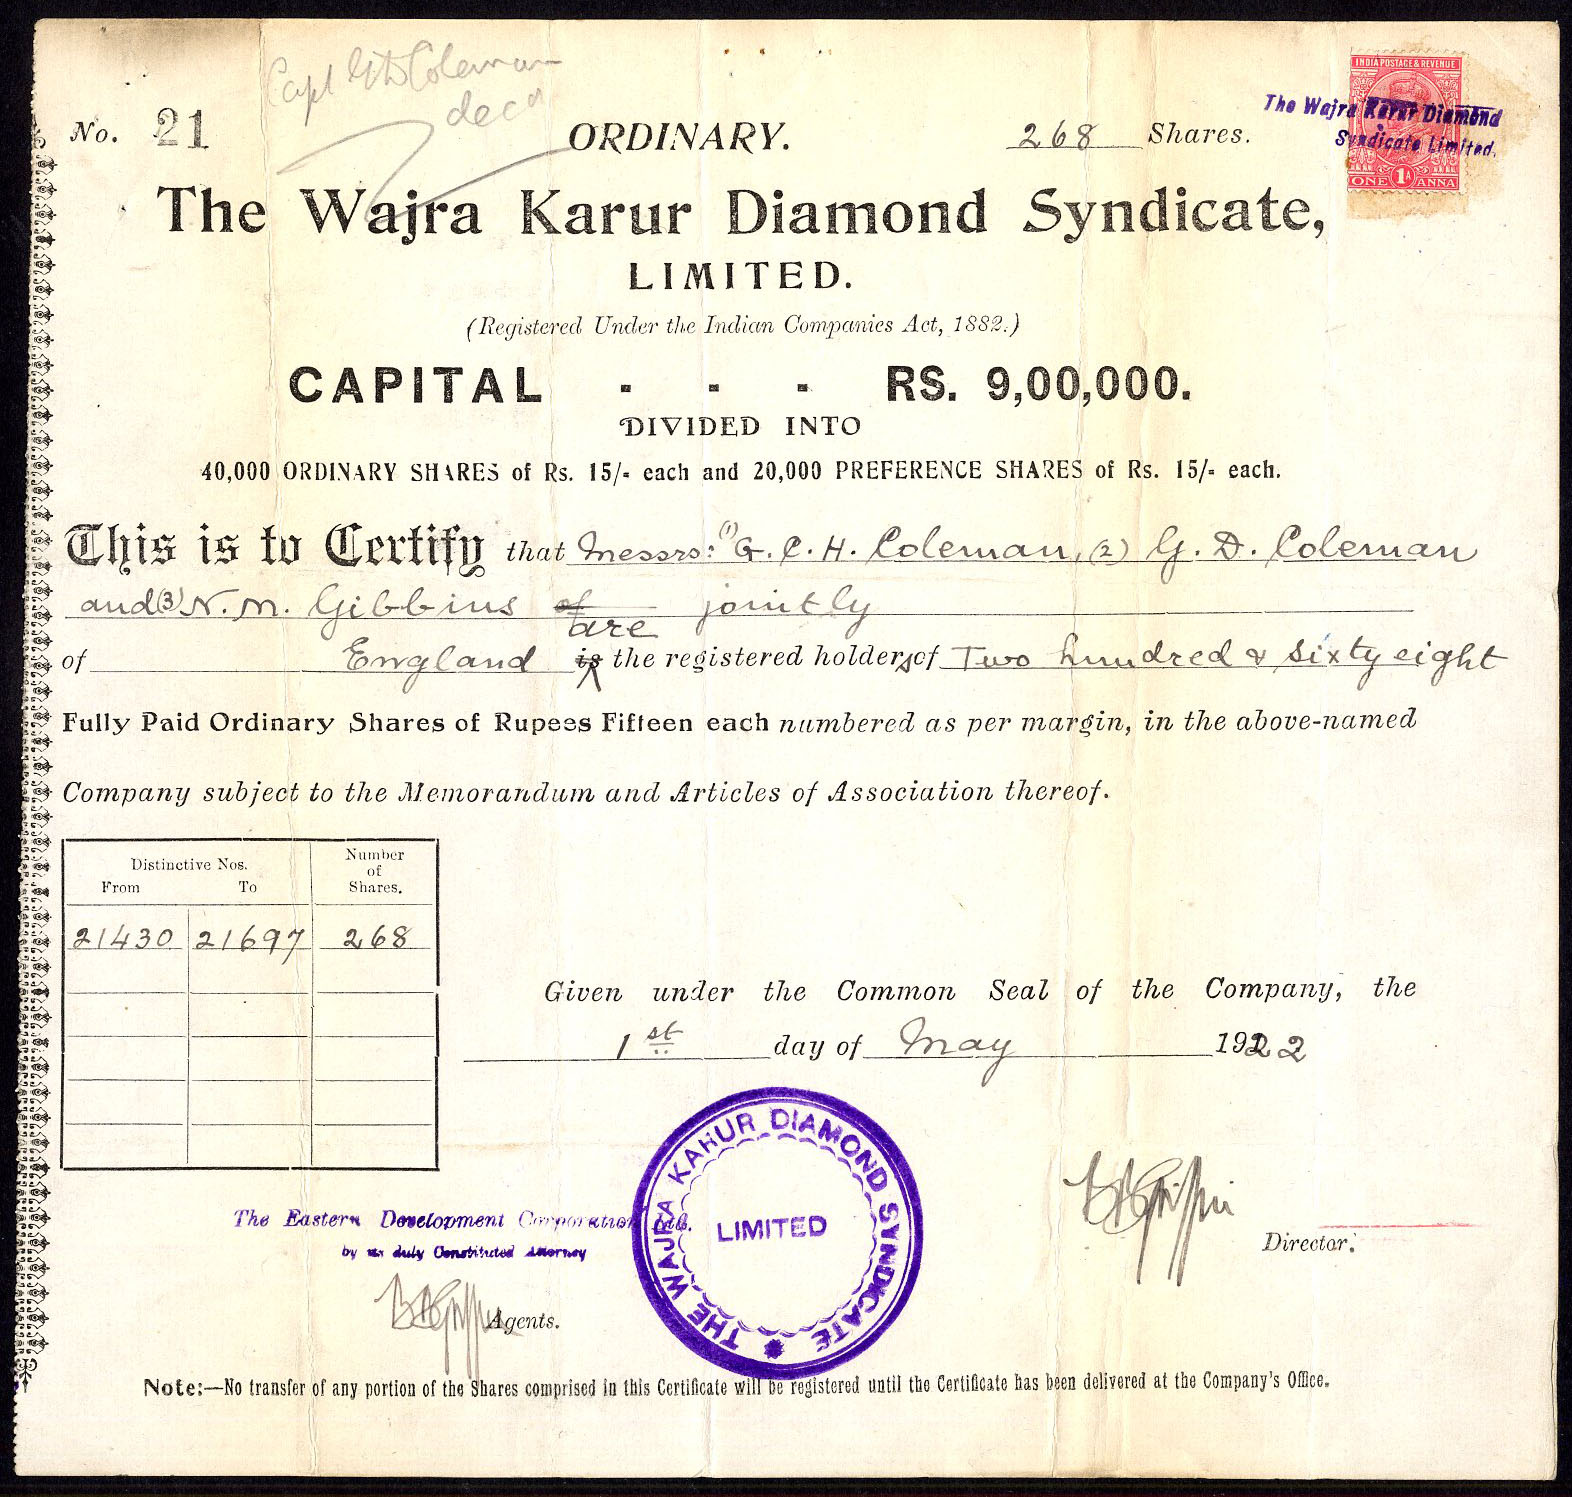 Capt G D Coleman
decd
No. 21
ORDINARY.
268 Shares.
INDIA POSTAGE & REVENUE
The Wajra Karur Diamond
Syndicate Limited.
ONE 1A ANNA
The Wajra Karur Diamond Syndicate,
LIMITED.
(Registered Under the Indian Companies Act, 1882.)
CAPITAL - - - RS. 9,00,000.
DIVIDED INTO
40,000 ORDINARY SHARES of Rs. 15/- each and 20,000 PREFERENCE SHARES of Rs. 15/- each.
This is to Certify that Messrs: (1) G. C. H. Coleman, (2) G. D. Coleman
and (3) N. M. Gibbins of jointly
are
of England is the registered holders of Two hundred & sixty eight
Fully Paid Ordinary Shares of Rupees Fifteen each numbered as per margin, in the above-named
Company subject to the Memorandum and Articles of Association thereof.
Distinctive Nos.
From To
Number
of
Shares.
21430 21697 268
Given under the Common Seal of the Company, the
1st day of May 1922
THE WAJRA KARUR DIAMOND SYNDICATE
LIMITED
The Eastern Development Corporation Ltd.
by its duly Constituted Attorney
Agents.
Director.
Note:—No transfer of any portion of the Shares comprised in this Certificate will be registered until the Certificate has been delivered at the Company's Office.